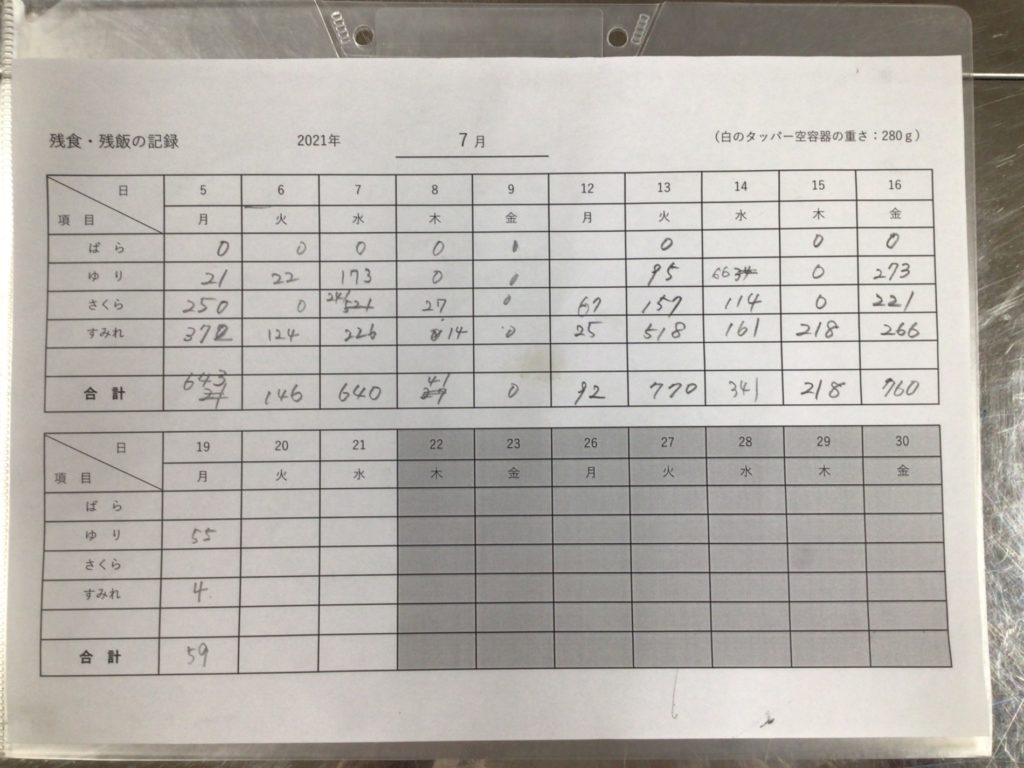 残食・残飯の記録 2021年 7月 (白のタッパー空容器の重さ:280g)
日 5 6 7 8 9 12 13 14 15 16
項目 月 火 水 木 金 月 火 水 木 金
ばら 0 0 0 0 0 0 0 0
ゆり 21 22 173 0 0 95 66 0 273
さくら 250 0 241 27 0 67 157 114 0 221
すみれ 372 124 226 14 0 25 518 161 218 266
合計 643 146 640 41 0 92 770 341 218 760
日 19 20 21 22 23 26 27 28 29 30
項目 月 火 水 木 金 月 火 水 木 金
ばら
ゆり 55
さくら
すみれ 4
合計 59